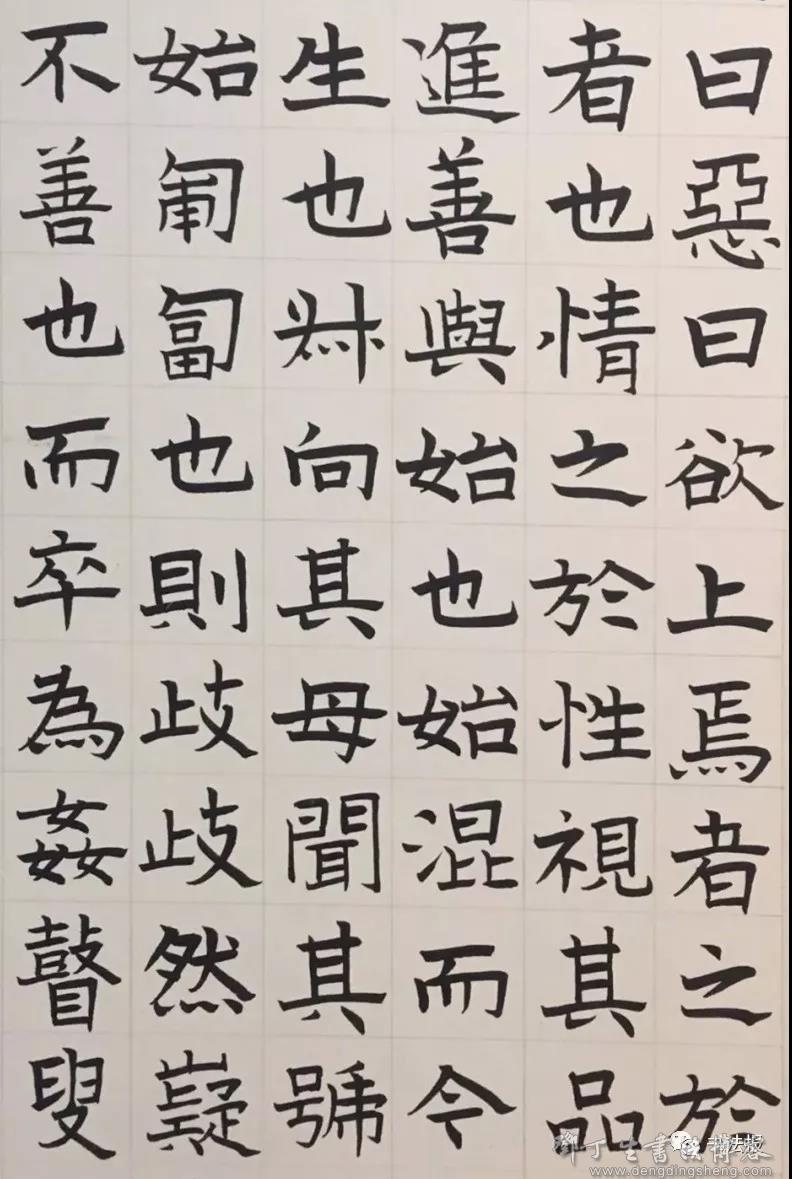 曰惡曰欲上焉者之於
者也情之於性視其品
進善與始也始混而今
生也叔向其母聞其號
始匍匐也則歧歧然嶷
不善也而卒為姦瞽叟
书法报
www.dengdingsheng.com